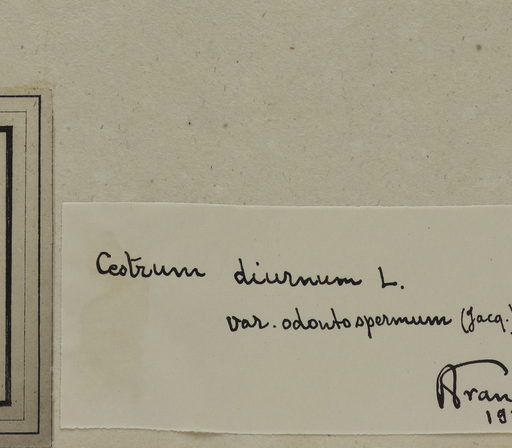 Cestrum diurnum L.
var. odontospermum (Jacq.)
Fran
19